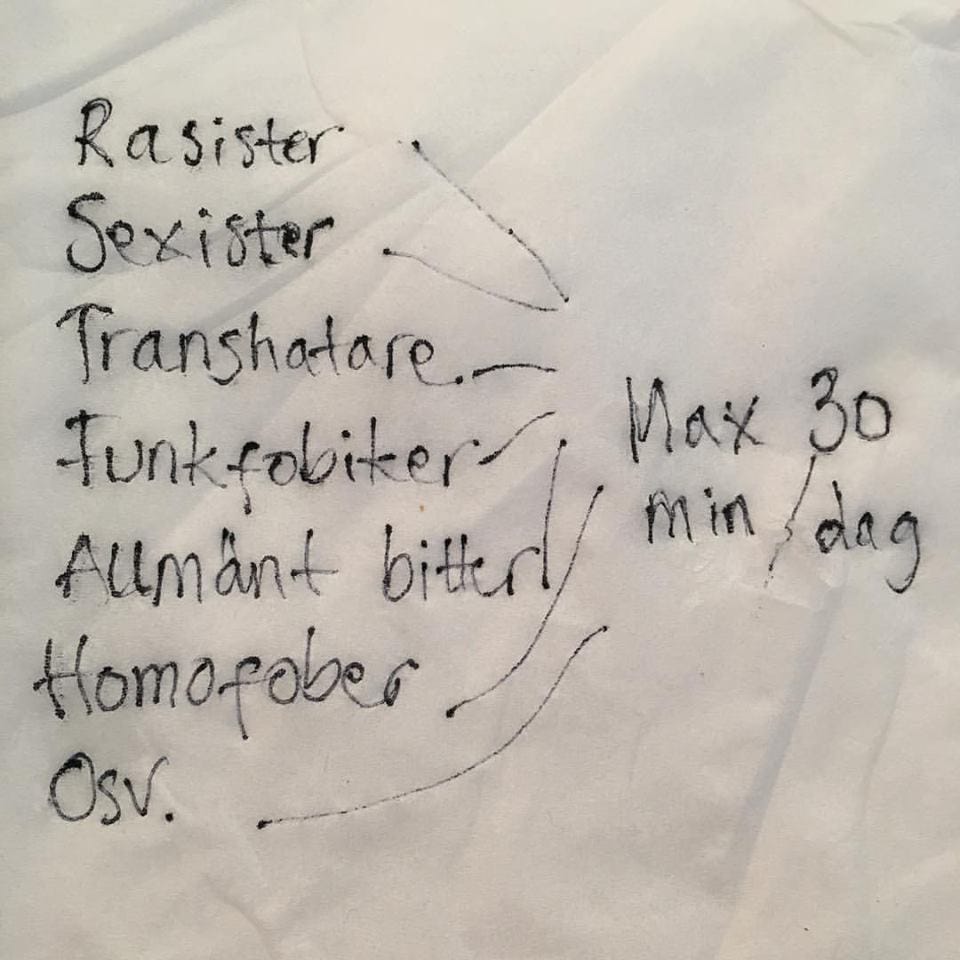 Rasister
Sexister
Transhatare.
Funkfobiker
Allmänt bitter
Homofober
Osv.
Max 30
min/dag